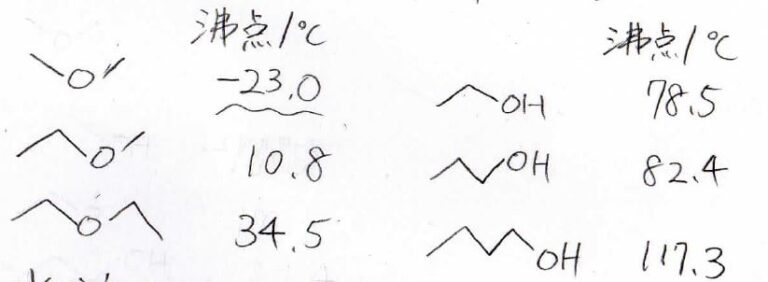 沸点/℃ 沸点/℃
O -23.0 OH 78.5
O 10.8 OH 82.4
O 34.5 OH 117.3